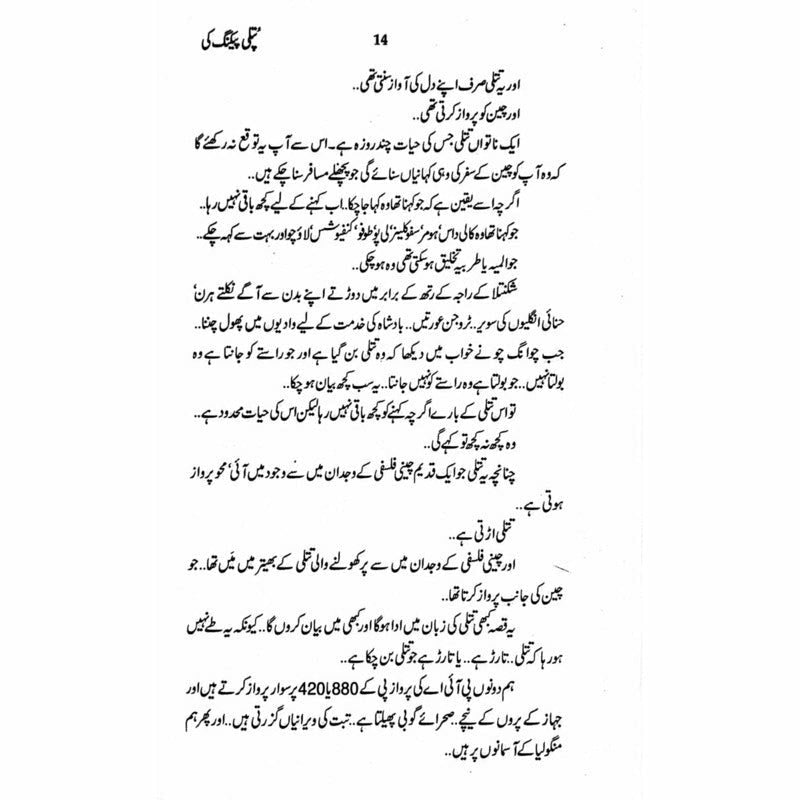 پُتلی پیکنگ کی 14
اور یہ تتلی صرف اپنے دل کی آواز سنتی تھی..
اور چین کو پرواز کرتی تھی..
ایک ناتواں تتلی جس کی حیات چند روزہ ہے۔ اس سے آپ یہ توقع نہ رکھئے گا
کہ وہ آپ کو چین کے سفر کی وہی کہانیاں سنائے گی جو پچھلے مسافر سنا چکے ہیں..
اگرچہ اسے یقین ہے کہ جو کہنا تھا وہ کہا جا چکا.. اب کہنے کے لیے کچھ باقی نہیں رہا..
جو کہنا تھا وہ کالی داس، ہومر، سفوکلیز، لی پو، طوفو، کنفیوشس، لاؤچو اور بہت سے کہہ چکے..
جو المیہ یا طربیہ تخلیق ہو سکتی تھی وہ ہو چکی..
شکنتلا کے راجہ کے رتھ کے برابر میں دوڑتے اپنے بدن سے آگے نکلتے ہرن،
حنائی انگلیوں کی سویر.. ٹروجن عورتیں.. بادشاہ کی خدمت کے لیے وادیوں میں پھول چننا..
جب چوانگ چو نے خواب میں دیکھا کہ وہ تتلی بن گیا ہے اور جو راستے کو جانتا ہے وہ
بولتا نہیں.. جو بولتا ہے وہ راستے کو نہیں جانتا.. یہ سب کچھ بیان ہو چکا..
تو اس تتلی کے بارے اگرچہ کہنے کو کچھ باقی نہیں رہا لیکن اس کی حیات محدود ہے..
وہ کچھ نہ کچھ تو کہے گی..
چنانچہ یہ تتلی جو ایک قدیم چینی فلسفی کے وجدان میں سے وجود میں آئی، محو پرواز
ہوتی ہے..
تتلی اڑتی ہے..
اور چینی فلسفی کے وجدان میں سے پر کھولنے والی تتلی کے بھیتر میں مَیں تھا.. جو
چین کی جانب پرواز کرتا تھا..
یہ قصہ کبھی تتلی کی زبان میں ادا ہوگا اور کبھی میں بیان کروں گا.. کیونکہ یہ طے نہیں
ہو رہا کہ تتلی.. تارڑ ہے.. یا تارڑ ہے جو تتلی بن چکا ہے..
ہم دونوں پی آئی اے کی پرواز پی کے 880 یا 420 پر سوار پرواز کرتے ہیں اور
جہاز کے پروں کے نیچے.. صحرائے گوبی پھیلتا ہے.. تبت کی ویرانیاں گزرتی ہیں.. اور پھر ہم
منگولیا کے آسمانوں پر ہیں..